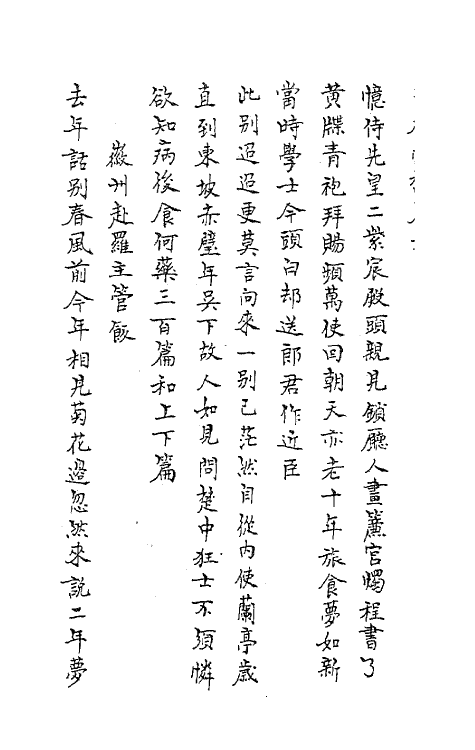 憶侍先皇二紫宸殿頭親見鎖廳人畫簾官燭程書了
黄牒青袍拜賜頻萬使回朝天亦老十年旅食夢如新
當時學士今頭白却送郎君作近臣
此别迢迢更莫言向來一别已茫然自從内使蘭亭歲
直到東坡赤壁年吳下故人如見問楚中狂士不須憐
欲知病後食何藥三百篇和上下篇
徽州赴羅主管飯
去年話别春風前今年相見菊花邉忽然來説二年夢